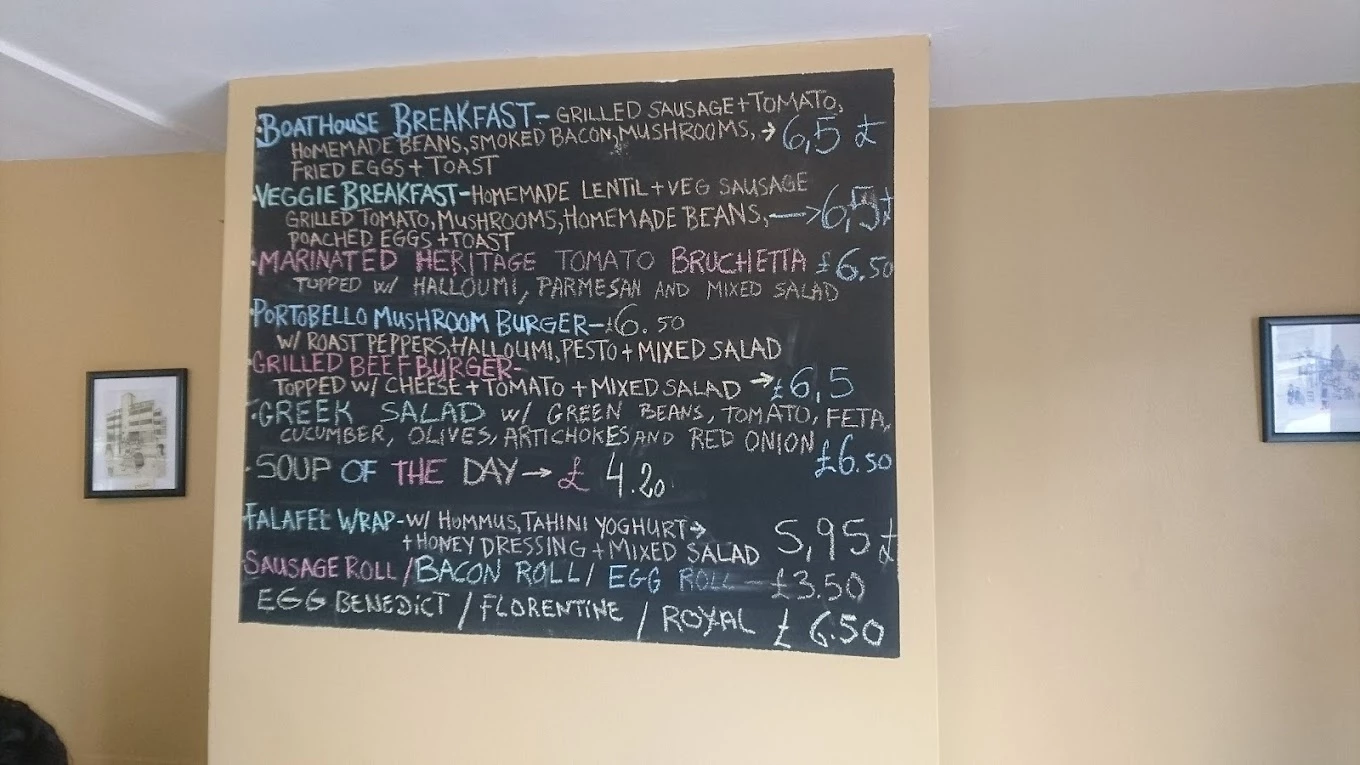 BOATHOUSE BREAKFAST- GRILLED SAUSAGE+TOMATO,
HOMEMADE BEANS, SMOKED BACON, MUSHROOMS, → 6,5 £
FRIED EGGS + TOAST
VEGGIE BREAKFAST-HOMEMADE LENTIL+VEG SAUSAGE
GRILLED TOMATO, MUSHROOMS, HOMEMADE BEANS, → 6,5£
POACHED EGGS +TOAST
MARINATED HERITAGE TOMATO BRUCHETTA £6.50
TOPPED W/ HALLOUMI, PARMESAN AND MIXED SALAD
PORTOBELLO MUSHROOM BURGER-£6.50
W/ ROAST PEPPERS, HALLOUMI, PESTO + MIXED SALAD
GRILLED BEEF BURGER-
TOPPED W/ CHEESE + TOMATO + MIXED SALAD → £6,5
GREEK SALAD W/ GREEN BEANS, TOMATO, FETA,
CUCUMBER, OLIVES, ARTICHOKES AND RED ONION £6.50
SOUP OF THE DAY → £ 4.20
FALAFEL WRAP-W/ HOMMUS, TAHINI YOGHURT →
+HONEY DRESSING + MIXED SALAD 5,95 £
SAUSAGE ROLL / BACON ROLL / EGG ROLL - £3.50
EGG BENEDICT / FLORENTINE / ROYAL £ 6.50